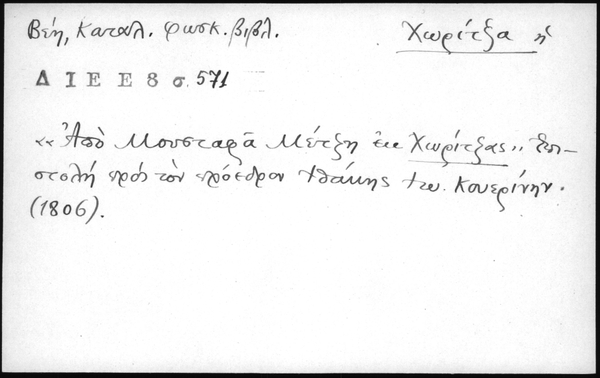 Βέη, Καταλ. Φωσκ. βιβλ. Χωρίτζα ἡ
Δ Ι Ε Ε 8 σ. 571
«Ἀπὸ Μουσταφᾶ Μέτζη ἐκ Χωρίτζας,, Ἐπι-
στολή πρός τὸν πρόεδρον Ἰθάκης Ἰω. Κουερίνην.
(1806).